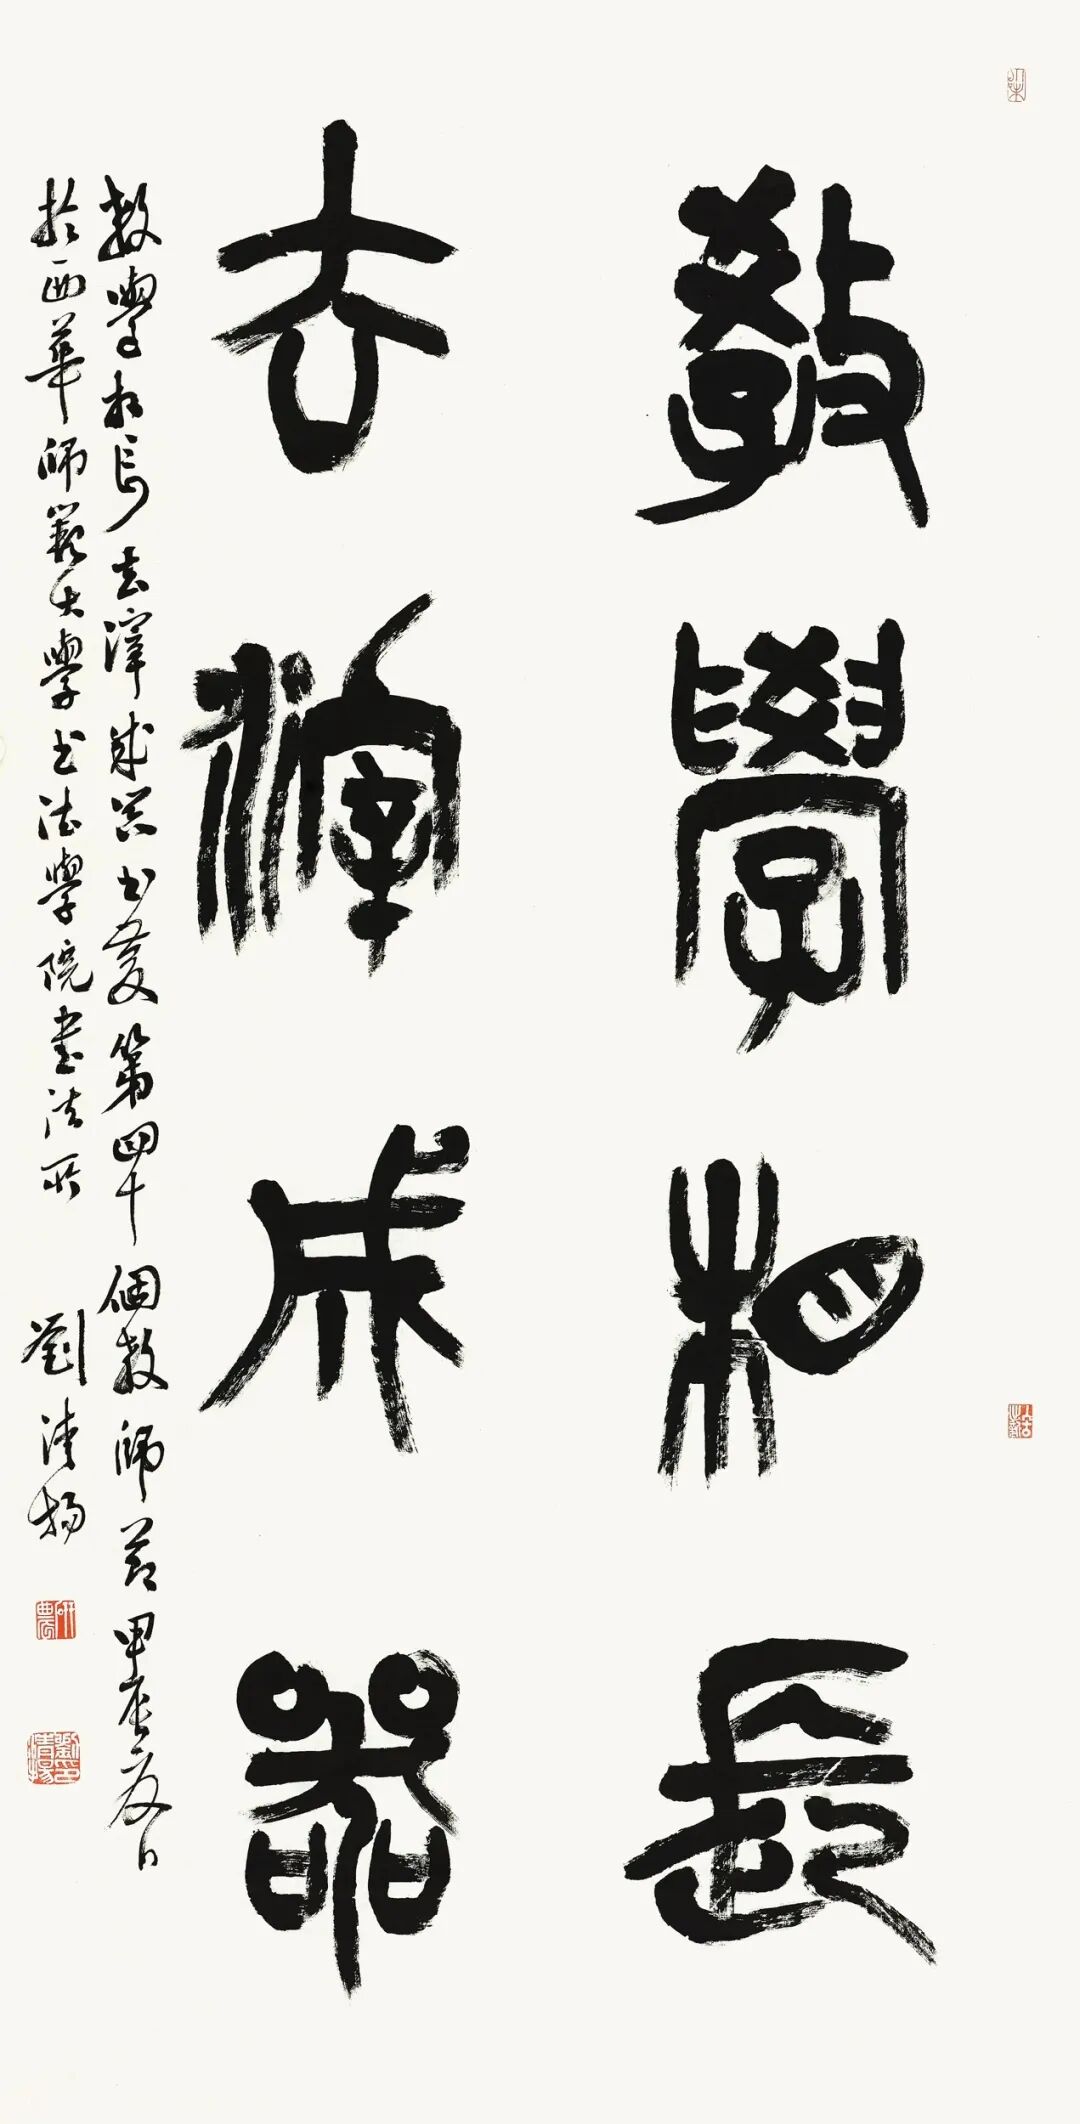 教學相長
去滓成器
教學相長去滓成器書慶第四十個教師節甲辰夏日
於西華師範大學書法學院書法所 劉清揚